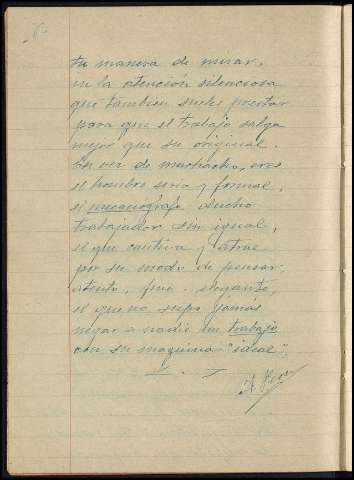 tu manera de mirar,
ni la atención silenciosa
que tambien sueles prestar
para que el trabajo salga
mejor que su original.
En vez de muchacho, eres
el hombre serio y formal,
el mecanógrafo ducho
trabajador sin igual,
el que cautiva y atrae
por su modo de pensar,
atento, fino, elegante,
el que no supo jamás
negar a nadie un trabajo
con su maquina "ideal",